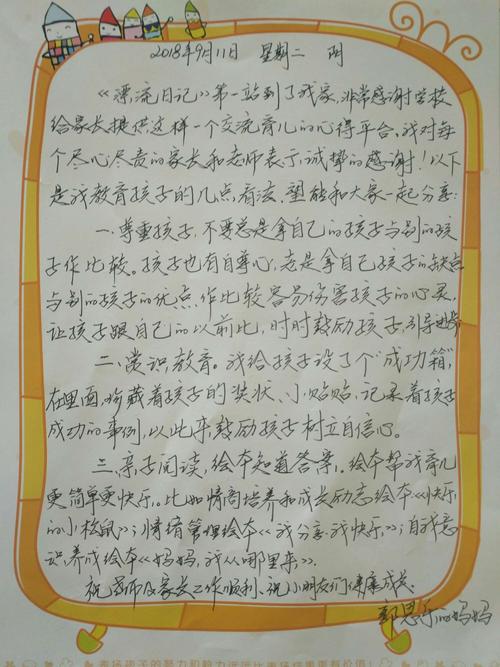 2018年9月11日 星期二 阴
《漂流日记》第一站到了我家，非常感谢学校
给家长提供这样一个交流育儿的心得平台，我对每
个尽心尽责的家长和老师表示诚挚的感谢！以下
是我教育孩子的几点看法，望能和大家一起分享：
一、尊重孩子，不要总是拿自己的孩子与别的孩
子作比较。孩子也有自尊心，老是拿自己孩子的缺点
与别的孩子的优点，作比较容易伤害孩子的心灵，
让孩子跟自己的以前比，时时鼓励孩子，引导进步
二、赏识教育。我给孩子设了个“成功箱”，
在里面，珍藏着孩子的奖状、小贴贴，记录着孩子
成功的事例，以此来鼓励孩子树立自信心。
三、亲子阅读，绘本知道答案。绘本帮我育儿
更简单更快乐。比如情商培养和成长励志绘本《快乐
的小松鼠》；情绪管理绘本《我分享我快乐》；自我意
识养成绘本《妈妈，我从哪里来》。
祝老师及家长工作顺利、祝小朋友们健康成长
郭恩的妈妈